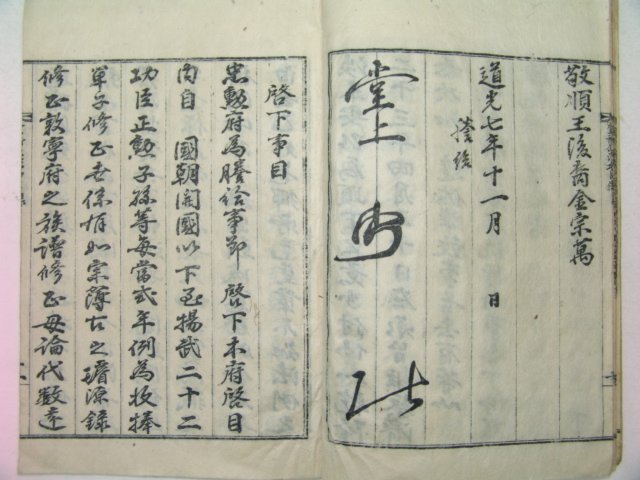 敬順王後裔金宗萬
道光七年十一月 日
堂上
啓下事目
忠勳府爲謄諭事節 啓下本府啓目
內自 國朝開國以下至揚武二十二
功臣正勳子孫等每當式年例爲捧
單子修正世係有如宗簿寺之璿源錄
修正敦寧府之族譜修正毋論代數遠